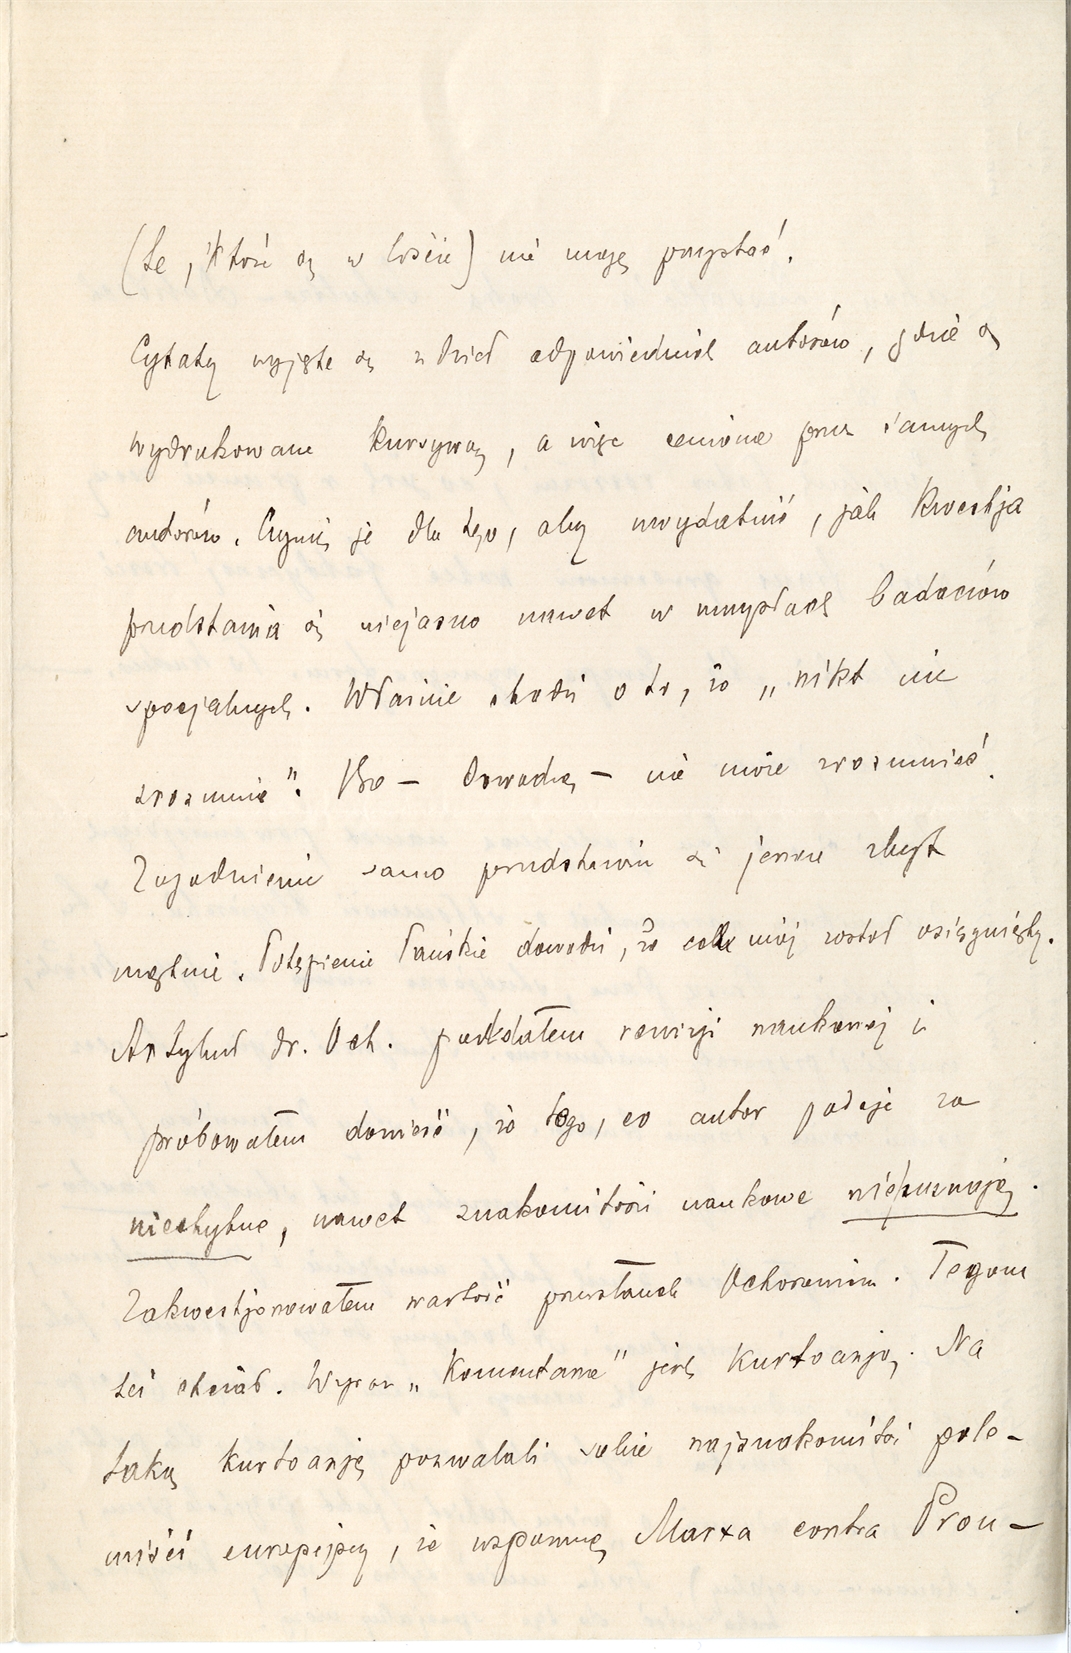 (te, które są w liście) nie mogę przystać.
Cytaty wyjęte są z dzieł odpowiednich autorów, gdzie są
wydrukowane kursywą, a więc cenione przez samych
autorów. Czynię je dla tego, aby uwydatnić, jak kwestja
przedstawia się niejasno nawet w umysłach badaczów
specjalnych. Właśnie chodzi o to, że „nikt nie
zrozumie". Bo — dowodzę — nie może zrozumieć.
Zagadnienie samo przedstawia się jeszcze zbyt
mętnie. Potępienie Pańskie dowodzi, że cel mój został osiągnięty.
Artykuł dr. Och. poddałem rewizji naukowej i
próbowałem dowieść, że tego, co autor podaje za
niechybne, nawet znakomitości naukowe nie uznają.
Zakwestjonowałem wartość przesłanek Ochorowicza. Tegom
też chciał. Wyraz „Komentarze" jest kurtoazją. Na
taką kurtoazję pozwalali sobie najznakomitsi pole-
miści europejscy, że wspomnę Marxa contra Prou-